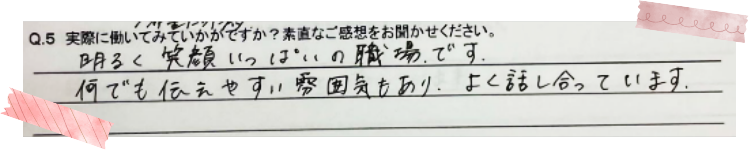 Q.5 実際に働いてみていかがですか？素直なご感想をお聞かせください。
明るく笑顔いっぱいの職場です.
何でも伝えやすい雰囲気もあり. よく話し合っています.